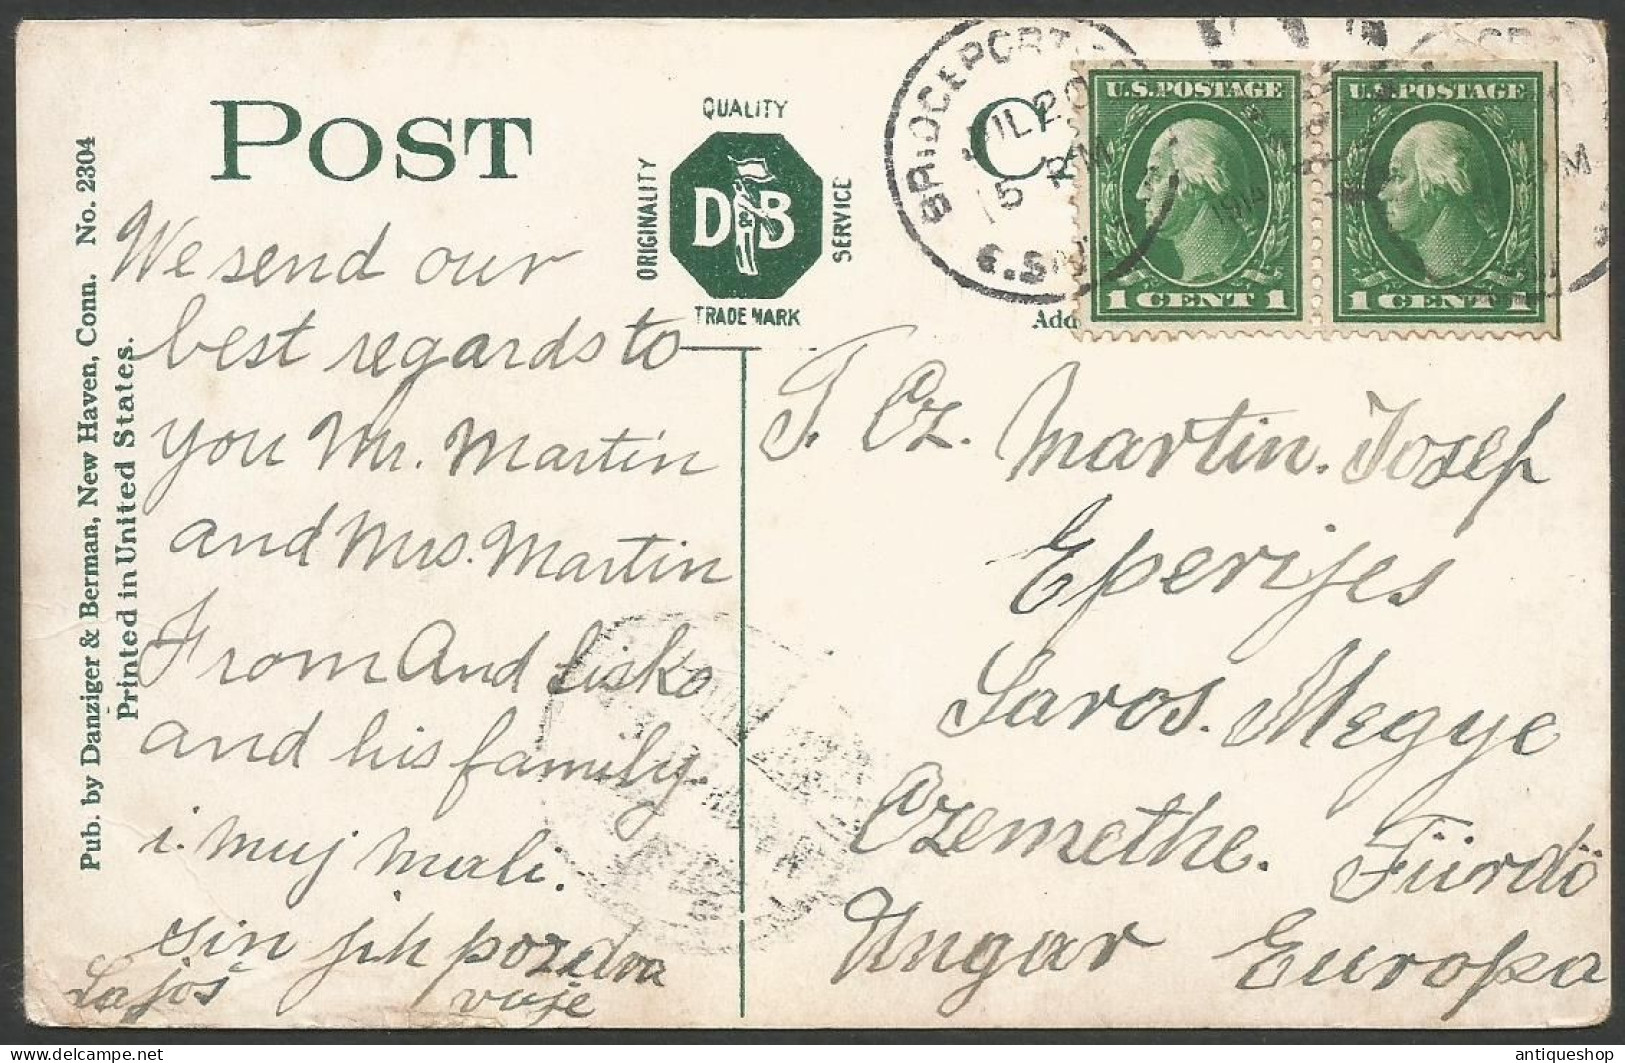 POST
C
QUALITY
ORIGINALITY
D&B
SERVICE
TRADE MARK
Add
BRIDGEPORT
JUL 20
5 PM
1914
U.S. POSTAGE
1 CENT 1
U.S. POSTAGE
1 CENT 1
M
Pub. by Danziger & Berman, New Haven, Conn. No. 2304
Printed in United States.
We send our
best regards to
you Mr. Martin
and Mrs. Martin
From And Lisko
and his family.
i. muj mali.
sin jih pozdra
vuje
Lajoš
T. Cz. Martin. Josef
Eperijes
Saros. Megye
Czemethe. Fürdö
Ungar Europa
antiqueshop